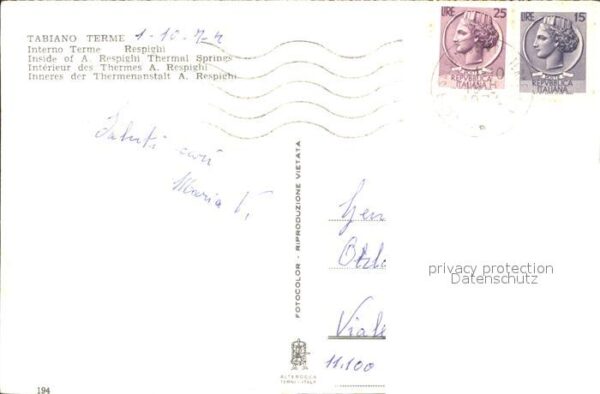 TABIANO TERME 1-10-74
Interno Terme Respighi
Inside of A. Respighi Thermal Springs
Intérieur des Thermes A. Respighi
Inneres der Thermenanstalt A. Respighi
LIRE 25
REPVBBLICA
ITALIANA
LIRE 15
REPVBBLICA
ITALIANA
Saluti cari
Maria V.
FOTOCOLOR - RIPRODUZIONE VIETATA
Gen
Viale
11.100
privacy protection
Datenschutz
ALTEROCCA
TERNI - ITALY
194